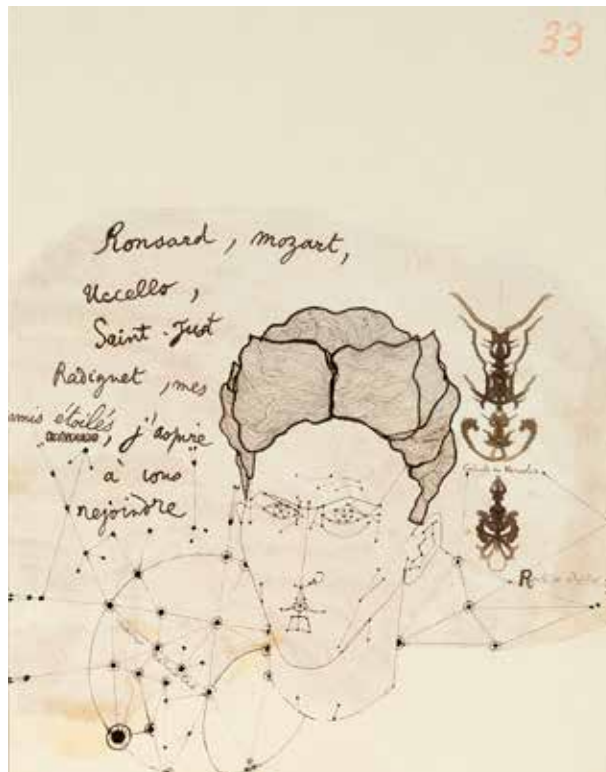 33
Ronsard, mozart,
Uccello,
Saint-Just
Radiguet, mes
amis étoilés, j'aspire
à vous
rejoindre